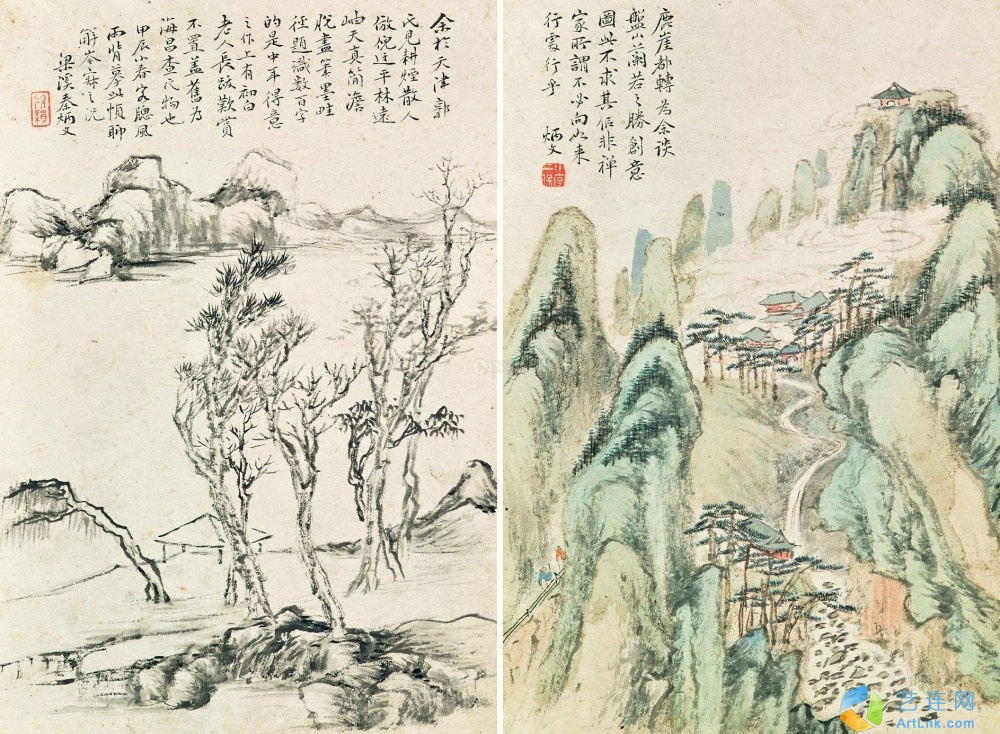 余於天津郭
氏見耕煙散人
倣倪迂平林遠
岫天真簡澹
脫盡筆墨畦
徑題識數百字
的是中年得意
之作上有初白
老人長跋歎賞
不置蓋舊為
海昌查氏物也
甲辰小春客聽風
雨背摹此幀聊
解岑寂之況
梁溪秦炳文
崖都轉為余談
盤山蘭若之勝創意
圖此不求其佀非禅
家所謂不必向如来
行處行乎
炳文
艺连网
ArtLink.com